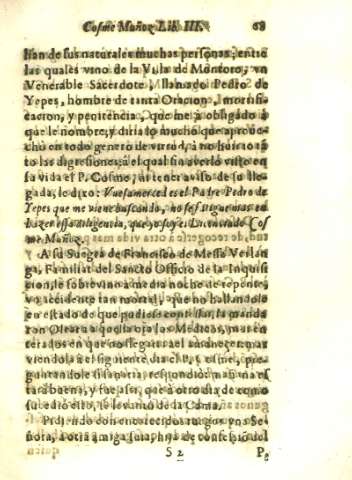 Cosme Muñoz Lib. III. 68
lian de sus naturales muchas personas; entre
las quales vino de la Villa de Montoro, vn
Venerable Sacerdote, llamado Pedro de
Yepes, hombre de tanta Oracion, mortifi-
cacion, y penitencia, que me à obligado à
que le nombre; y diria lo mucho que aprove-
chò en todo genero de virtud, à no huir
las digresiones; à el qual sin averlo visto en
su vida el P. Cosme, ni tener aviso de su lle-
gada, le dixo: Vuesa merced es el Padre Pedro de
Yepes que me viene buscando, no se fatigue mas en
hazer essa diligencia, que yo soy el Licenciado Cos
me Muñoz.
A su Suegra de Francisco de Messa Verlan
ga, Familiar del Sancto Officio de la Inquisi
cion, le sobrevino à media noche de repente,
vn accidente tan mortal, que no hallandole
en estado de que pudiese confessar, la manda
ron Olear à aquella oja los Medicos,
rados en que no llegara à el amanecer
viendola à el siguiente dia el P. Cosme, pre-
guntandole si sanaria, respondió: mañana es
tarà buena, y fue assi, que à otro dia de como
sucediò esto, se levantò de la Cama.
Pidiendo con encarecidos ruegos vna Se-
ñora, à otra amiga suya, hija de confesiõ del
S 2 P.